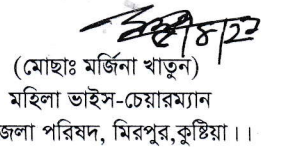 (মোছাঃ মর্জিনা খাতুন)
মহিলা ভাইস-চেয়ারম্যান
জলা পরিষদ, মিরপুর,কুষ্টিয়া।।